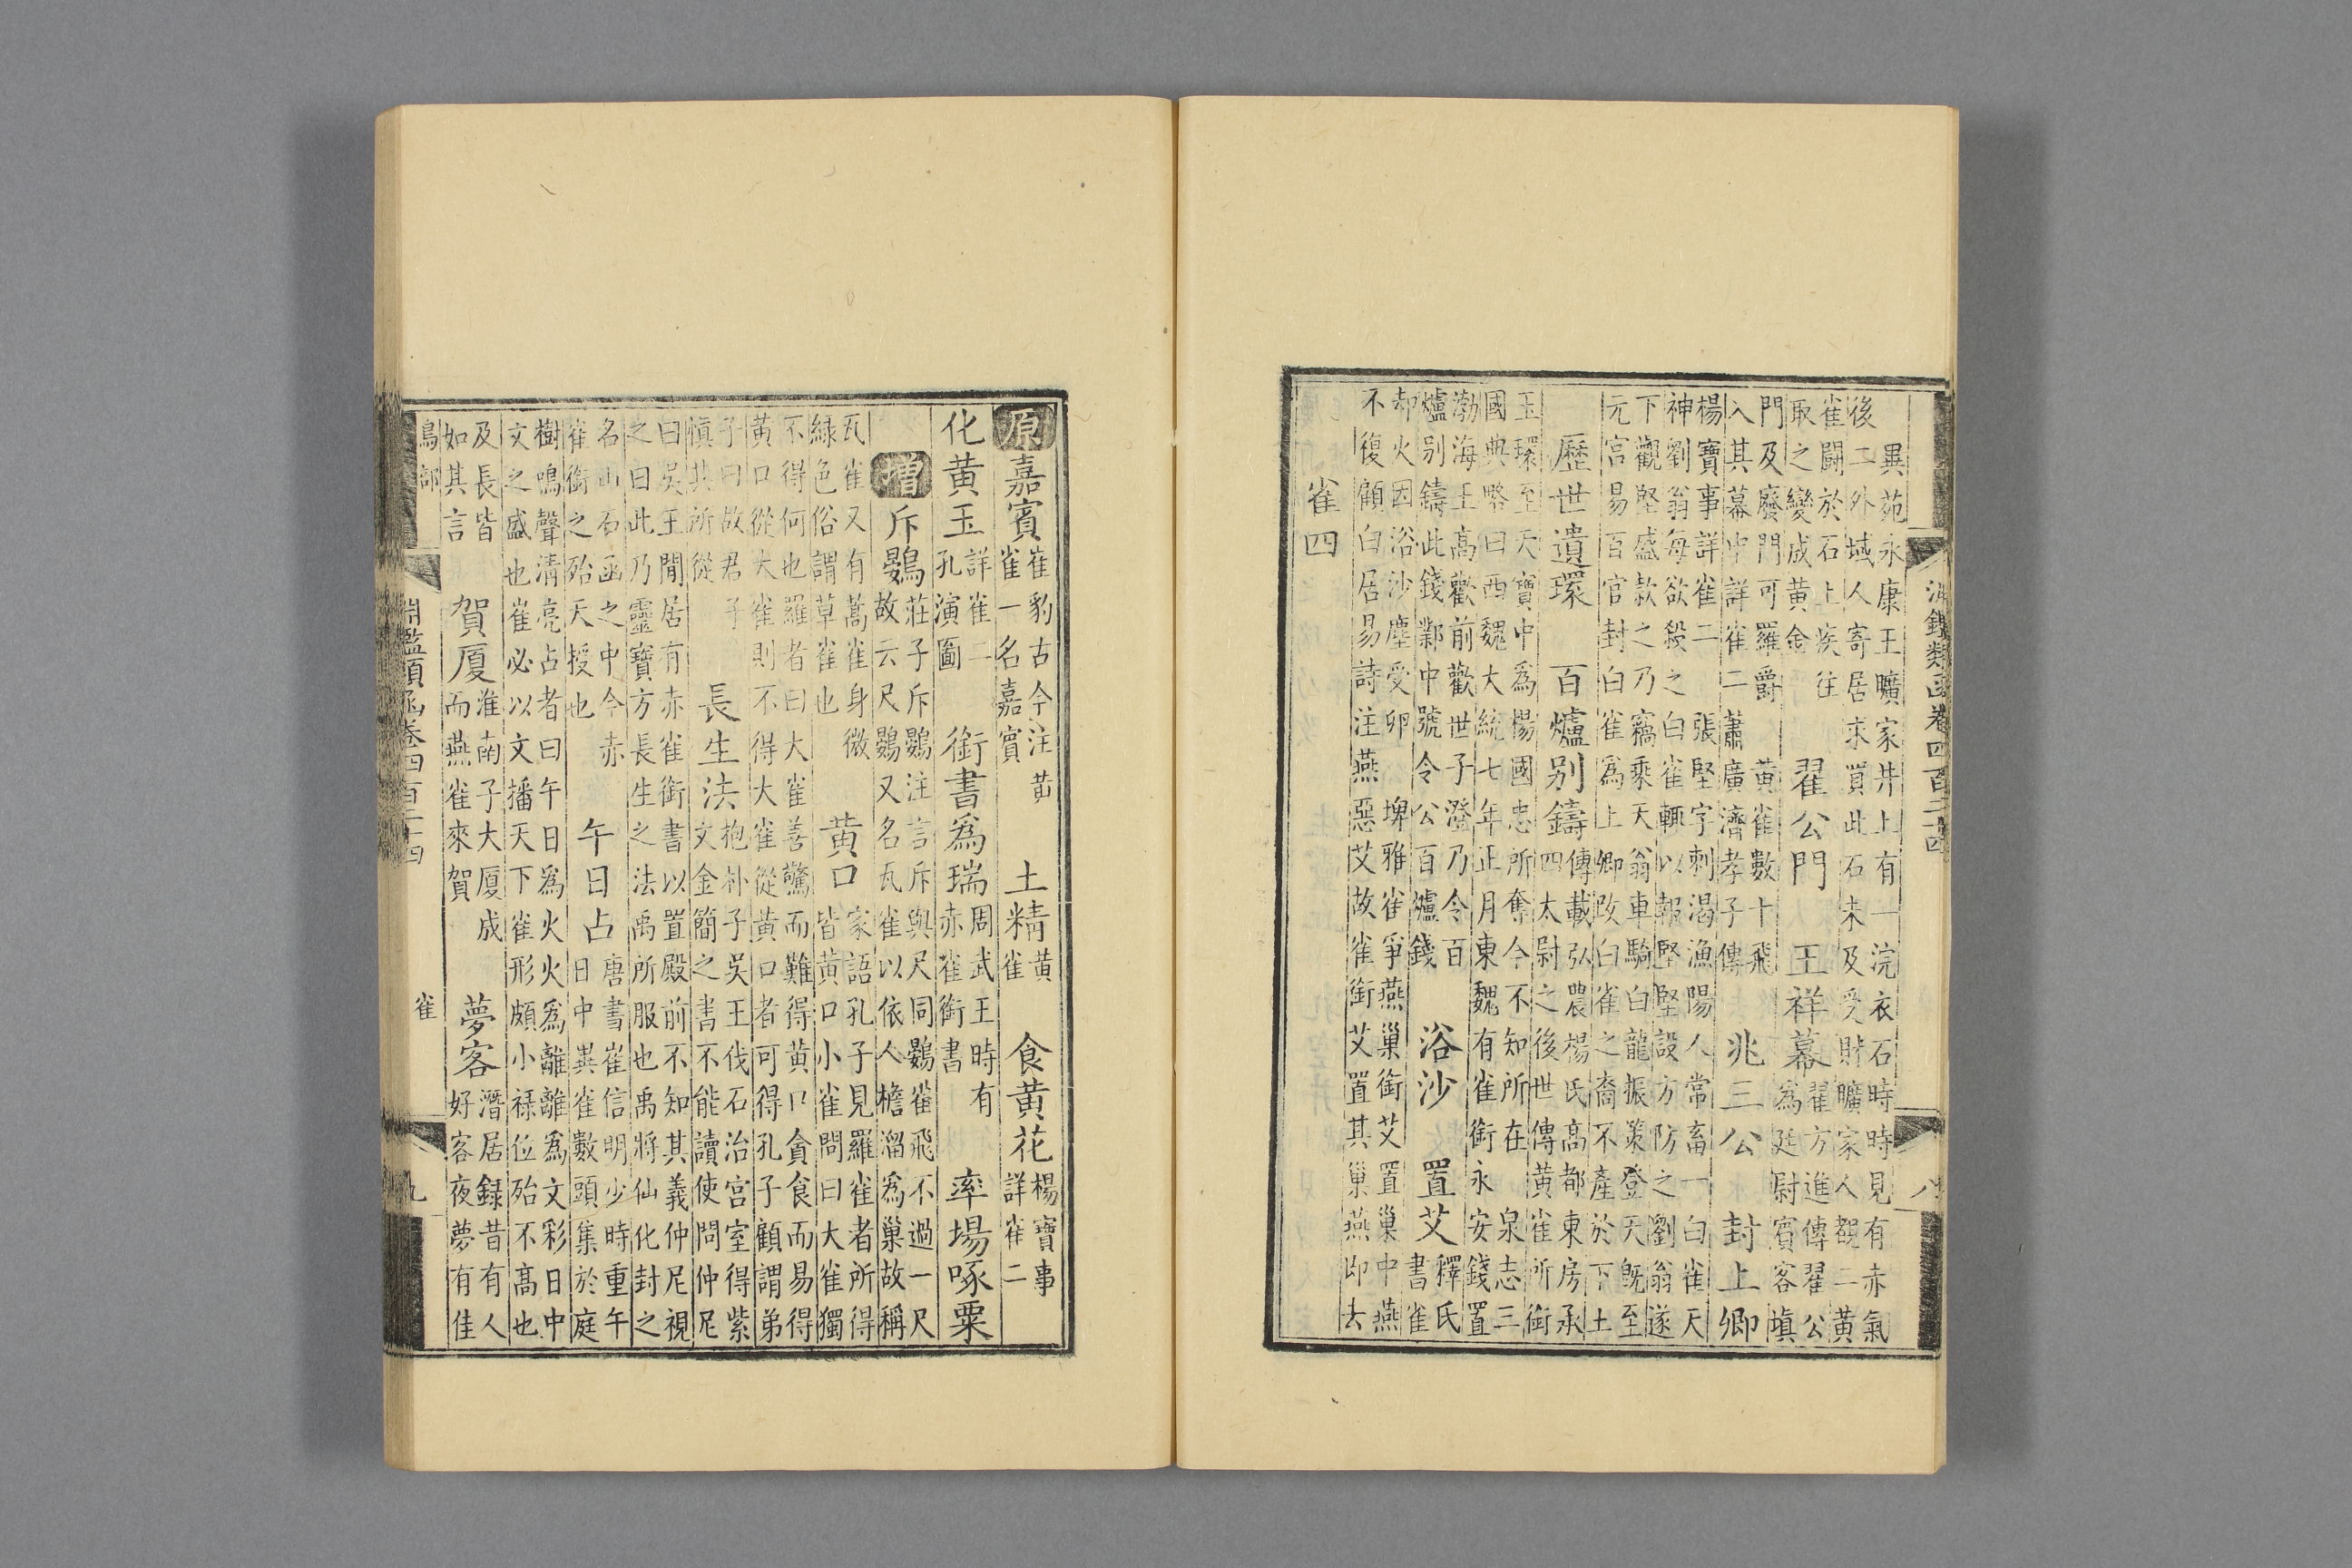 淵鑑類函卷四百二十四 八
異苑永康王曠家井上有一浣衣石時時見有赤氣
後二外域人寄居求買此石未及受財曠家人覩二黄
雀鬬於石上疾往
取之變成黄金
翟公門 王祥幕
翟方進傳翟公
為廷尉賓客填
門及廢門可羅爵 黄雀數十飛
入其幕中詳雀二 蕭廣濟孝子傳
兆三公 封上卿
楊寶事詳雀二 張堅字刺渴漁陽人常畜一白雀天
神劉翁每欲殺之白雀輙以報堅堅設方防之劉翁遂
下觀堅盛款之乃竊乘天翁車騎白龍振策登天既至
元宫易百官封白雀為上卿改白雀之裔不產於下土
歷世遺環 百爐别鑄
傳載弘農楊氏髙都東房承
四太尉之後世傳黄雀所銜
玉環至天寶中為楊國忠所奪今不知所在 泉志三
國典略曰西魏大統七年正月東魏有雀銜永安錢置
渤海王髙歡前歡世子澄乃令百
爐别鑄此錢鄴中號令公百爐錢
浴沙 置艾
釋氏
書雀
却火因浴沙塵受卵 埤雅雀爭燕巢銜艾置巢中燕
不復顧白居易詩注燕惡艾故雀銜艾置其巢燕即去
雀四
原嘉賓
崔豹古今注黄
雀一名嘉賓
土精
黄
雀
食黄花
楊寶事
詳雀二
化黄玉
詳雀二
孔演圖
銜書為瑞
周武王時有
赤雀銜書
率場啄粟
增斥鷃
莊子斥鷃注言斥與尺同鷃雀飛不過一尺
故云尺鷃又名瓦雀以依人檐溜為巢故稱
瓦雀又有蒿雀身微
緑色俗謂草雀也
黄口
家語孔子見羅雀者所得
皆黄口小雀問曰大雀獨
不得何也羅者曰大雀善驚而難得黄口貪食而易得
黄口從大雀則不得大雀從黄口者可得孔子顧謂弟
子曰故君子
慎其所從
長生法
抱朴子吳王伐石治宫室得紫
文金簡之書不能讀使問仲尼
曰吳王閒居有赤雀銜書以置殿前不知其義仲尼視
之曰此乃靈寶方長生之法禹所服也禹將仙化封之
名山石函之中今赤
雀銜之殆天授也
午日占
唐書崔信明少時重午
日中異雀數頭集於庭
樹鳴聲清亮占者曰午日為火火為離離為文彩日中
文之盛也雀必以文播天下雀形頗小祿位殆不髙也
及長皆
如其言
賀厦
淮南子大厦成
而燕雀來賀
夢客
潛居録昔有人
好客夜夢有佳
鳥部 淵鑑類函卷四百二十四 雀 九